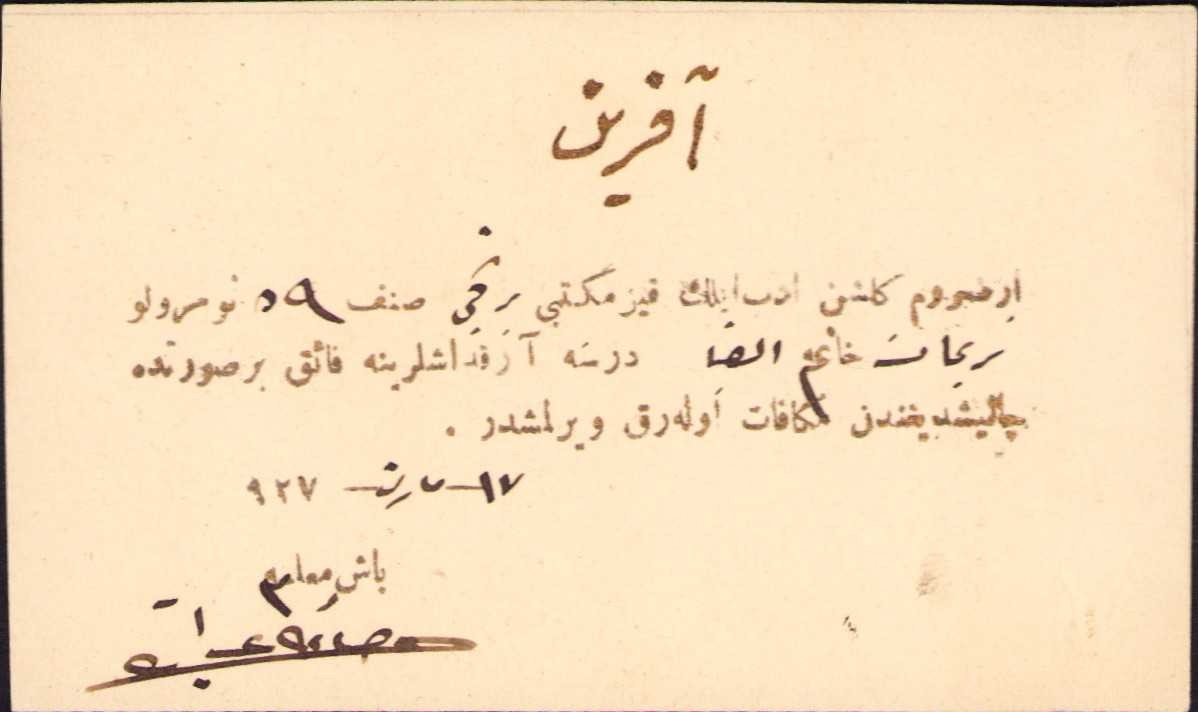 آفرین
ارضروم كلشن ادب ایلك قیز مكتبی برنجی صنف ٥٩ نومرولو
خانمه درسنه آرقداشلرینه فائق بر صورتده
چالیشدیغندن مكافات اوله‌رق ویرلمشدر .
١٧ مارت ٩٢٧
باش معلمه